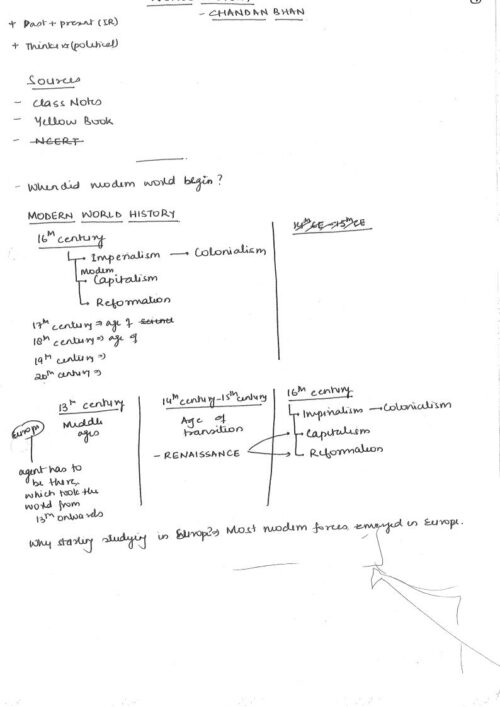 WORLD HISTORY
- CHANDAN BHAN
+ Past + present (IR)
+ Thinkers (political)
Sources
- Class Notes
- Yellow Book
- NCERT
- When did modern world begin?
MODERN WORLD HISTORY
16th century
→ Imperialism → Colonialism
Modern
→ Capitalism
→ Reformation
17th century ⇒ age of
18th century ⇒ age of
19th century ⇒
20th century ⇒
13th century
Middle
ages
Europe
agent has to
be there,
which took the
world from
13th onwards
14th century - 15th century
Age of
transition
- RENAISSANCE
16th century
→ Imperialism → Colonialism
→ Capitalism
→ Reformation
Why starting studying in Europe? → Most modern forces emerged in Europe.